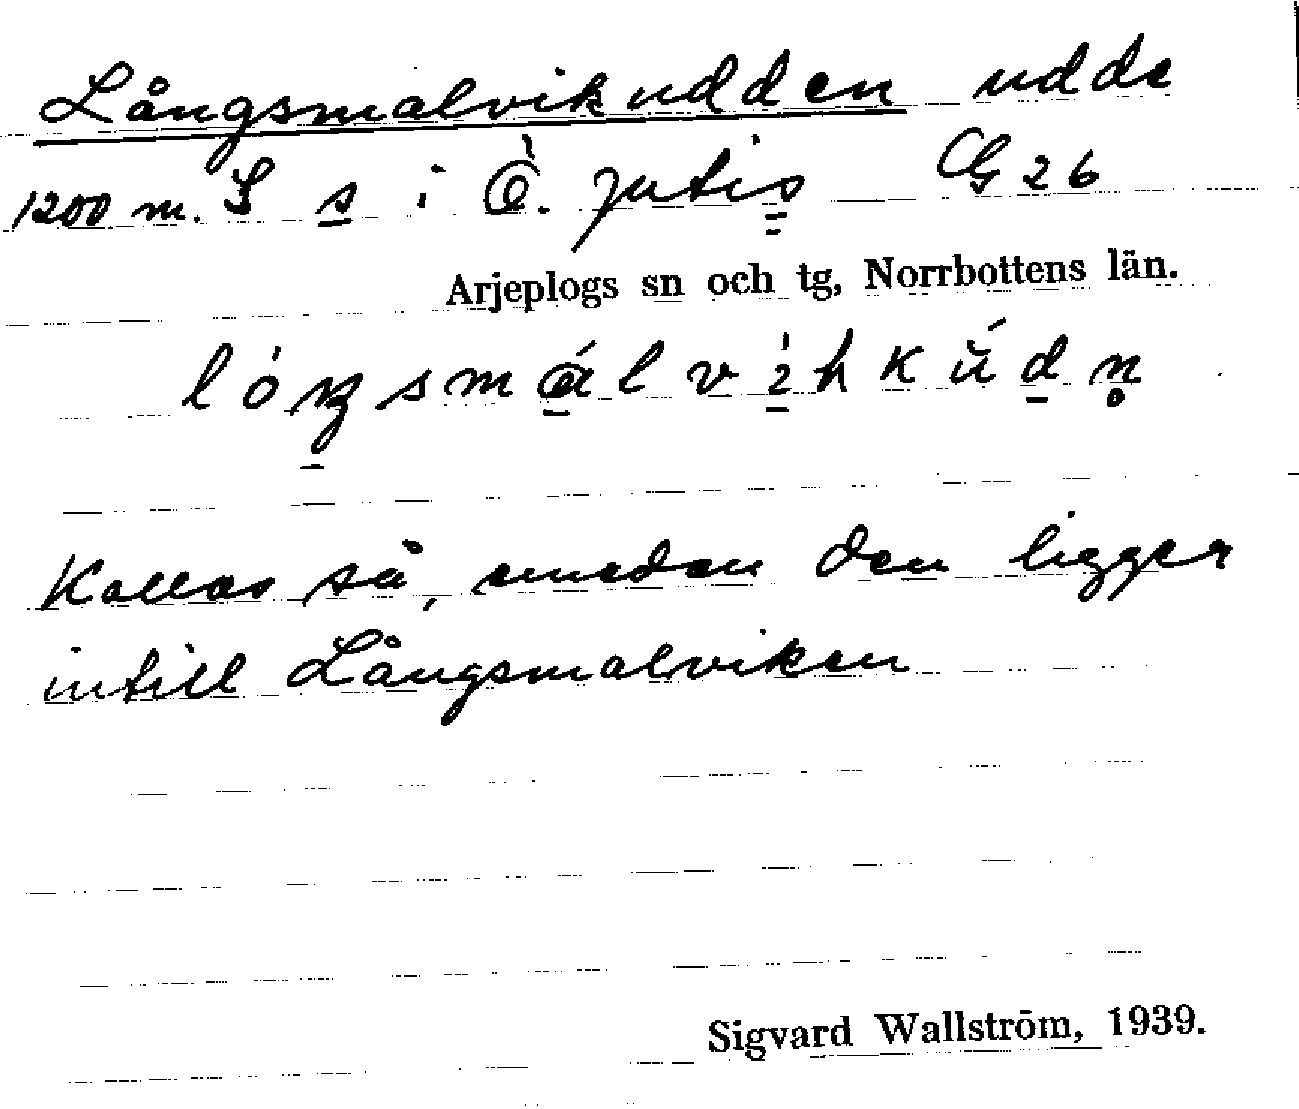 Långsmalvikudden udde
1200 m. S s i Ö. Jutis G 26
Arjeplogs sn och tg, Norrbottens län.
Kallas så, emedan den ligger
intill Långsmalviken
Sigvard Wallström, 1939.